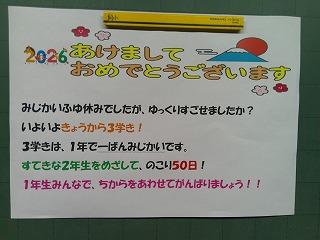 2026 あけまして
おめでとうございます
みじかいふゆ休みでしたが、ゆっくりすごせましたか？
いよいよきょうから3学き！
3学きは、1年で一ばんみじかいです。
すてきな2年生をめざして、のこり50日！
1年生みんなで、ちからをあわせてがんばりましょう！！